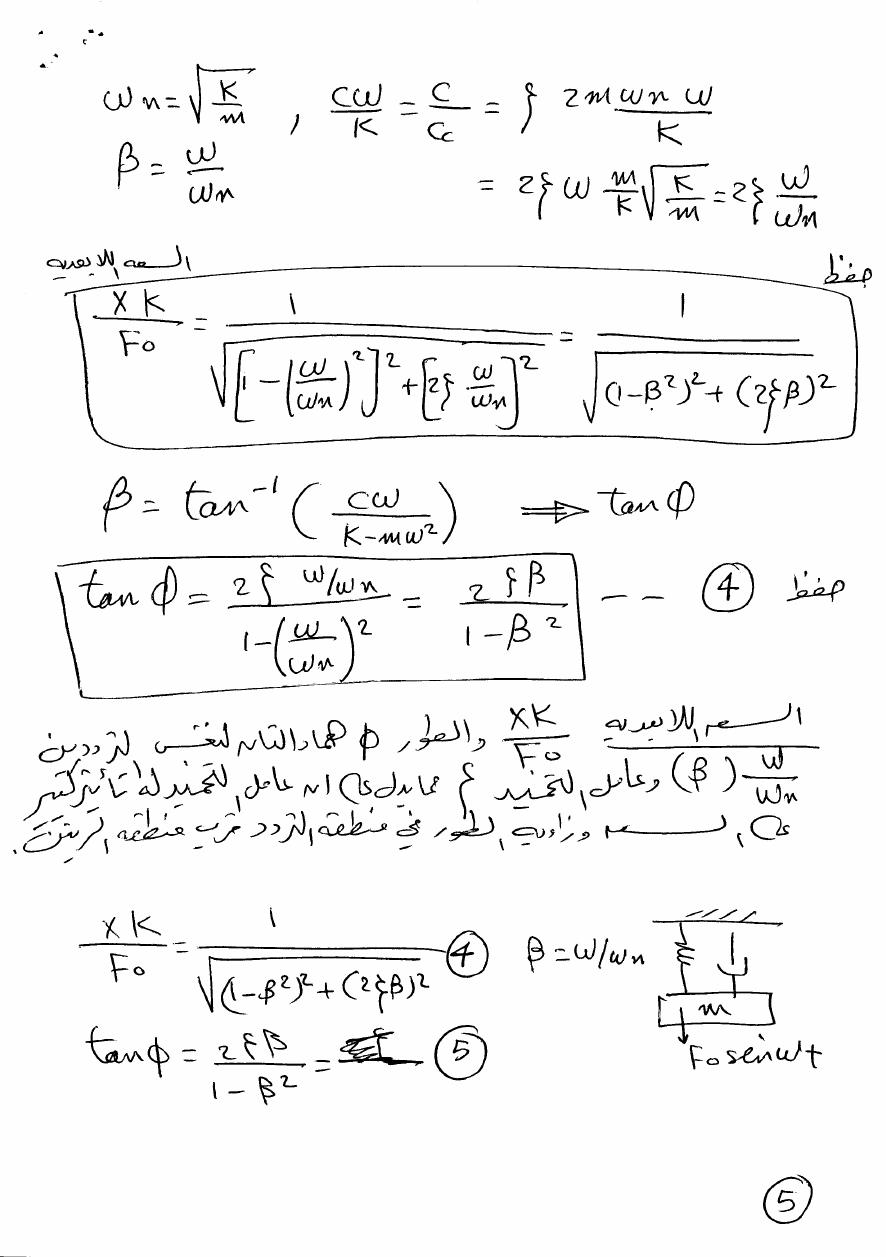 ωn = √(K/m) , cω/K = c/Cc = ξ 2mωn ω/K
β = ω/ωn = 2ξω m/K √(K/m) = 2ξ ω/ωn
السعه اللابعديه حفظ
XK/Fo = 1/√([1-(ω/ωn)²]²+[2ξ ω/ωn]²) = 1/√((1-β²)²+(2ξβ)²)
β = tan⁻¹(cω/(K-mω²)) ⟹ tan φ
tan φ = 2ξ ω/ωn/(1-(ω/ωn)²) = 2ξβ/(1-β²) -- ④ حفظ
السعه اللابعديه XK/Fo والطور φ هما دالتان لترددين
ω/ωn (β) وعامل التخميد ξ مما يدل على ان عامل التخميد له تأثير كبير
على السعه وزاويه الطور في منطقه التردد قرب منطقه الرنين.
XK/Fo = 1/√((1-β²)²+(2ξβ)²) ④ β = ω/ωn
m
tan φ = 2ξβ/(1-β²) = ⑤ Fo sinωt
⑤